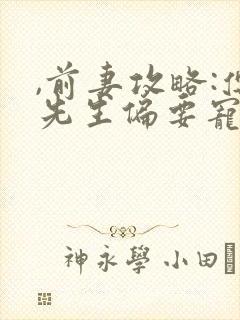 ,前妻攻略:
先生偏要寵
神永學 小田